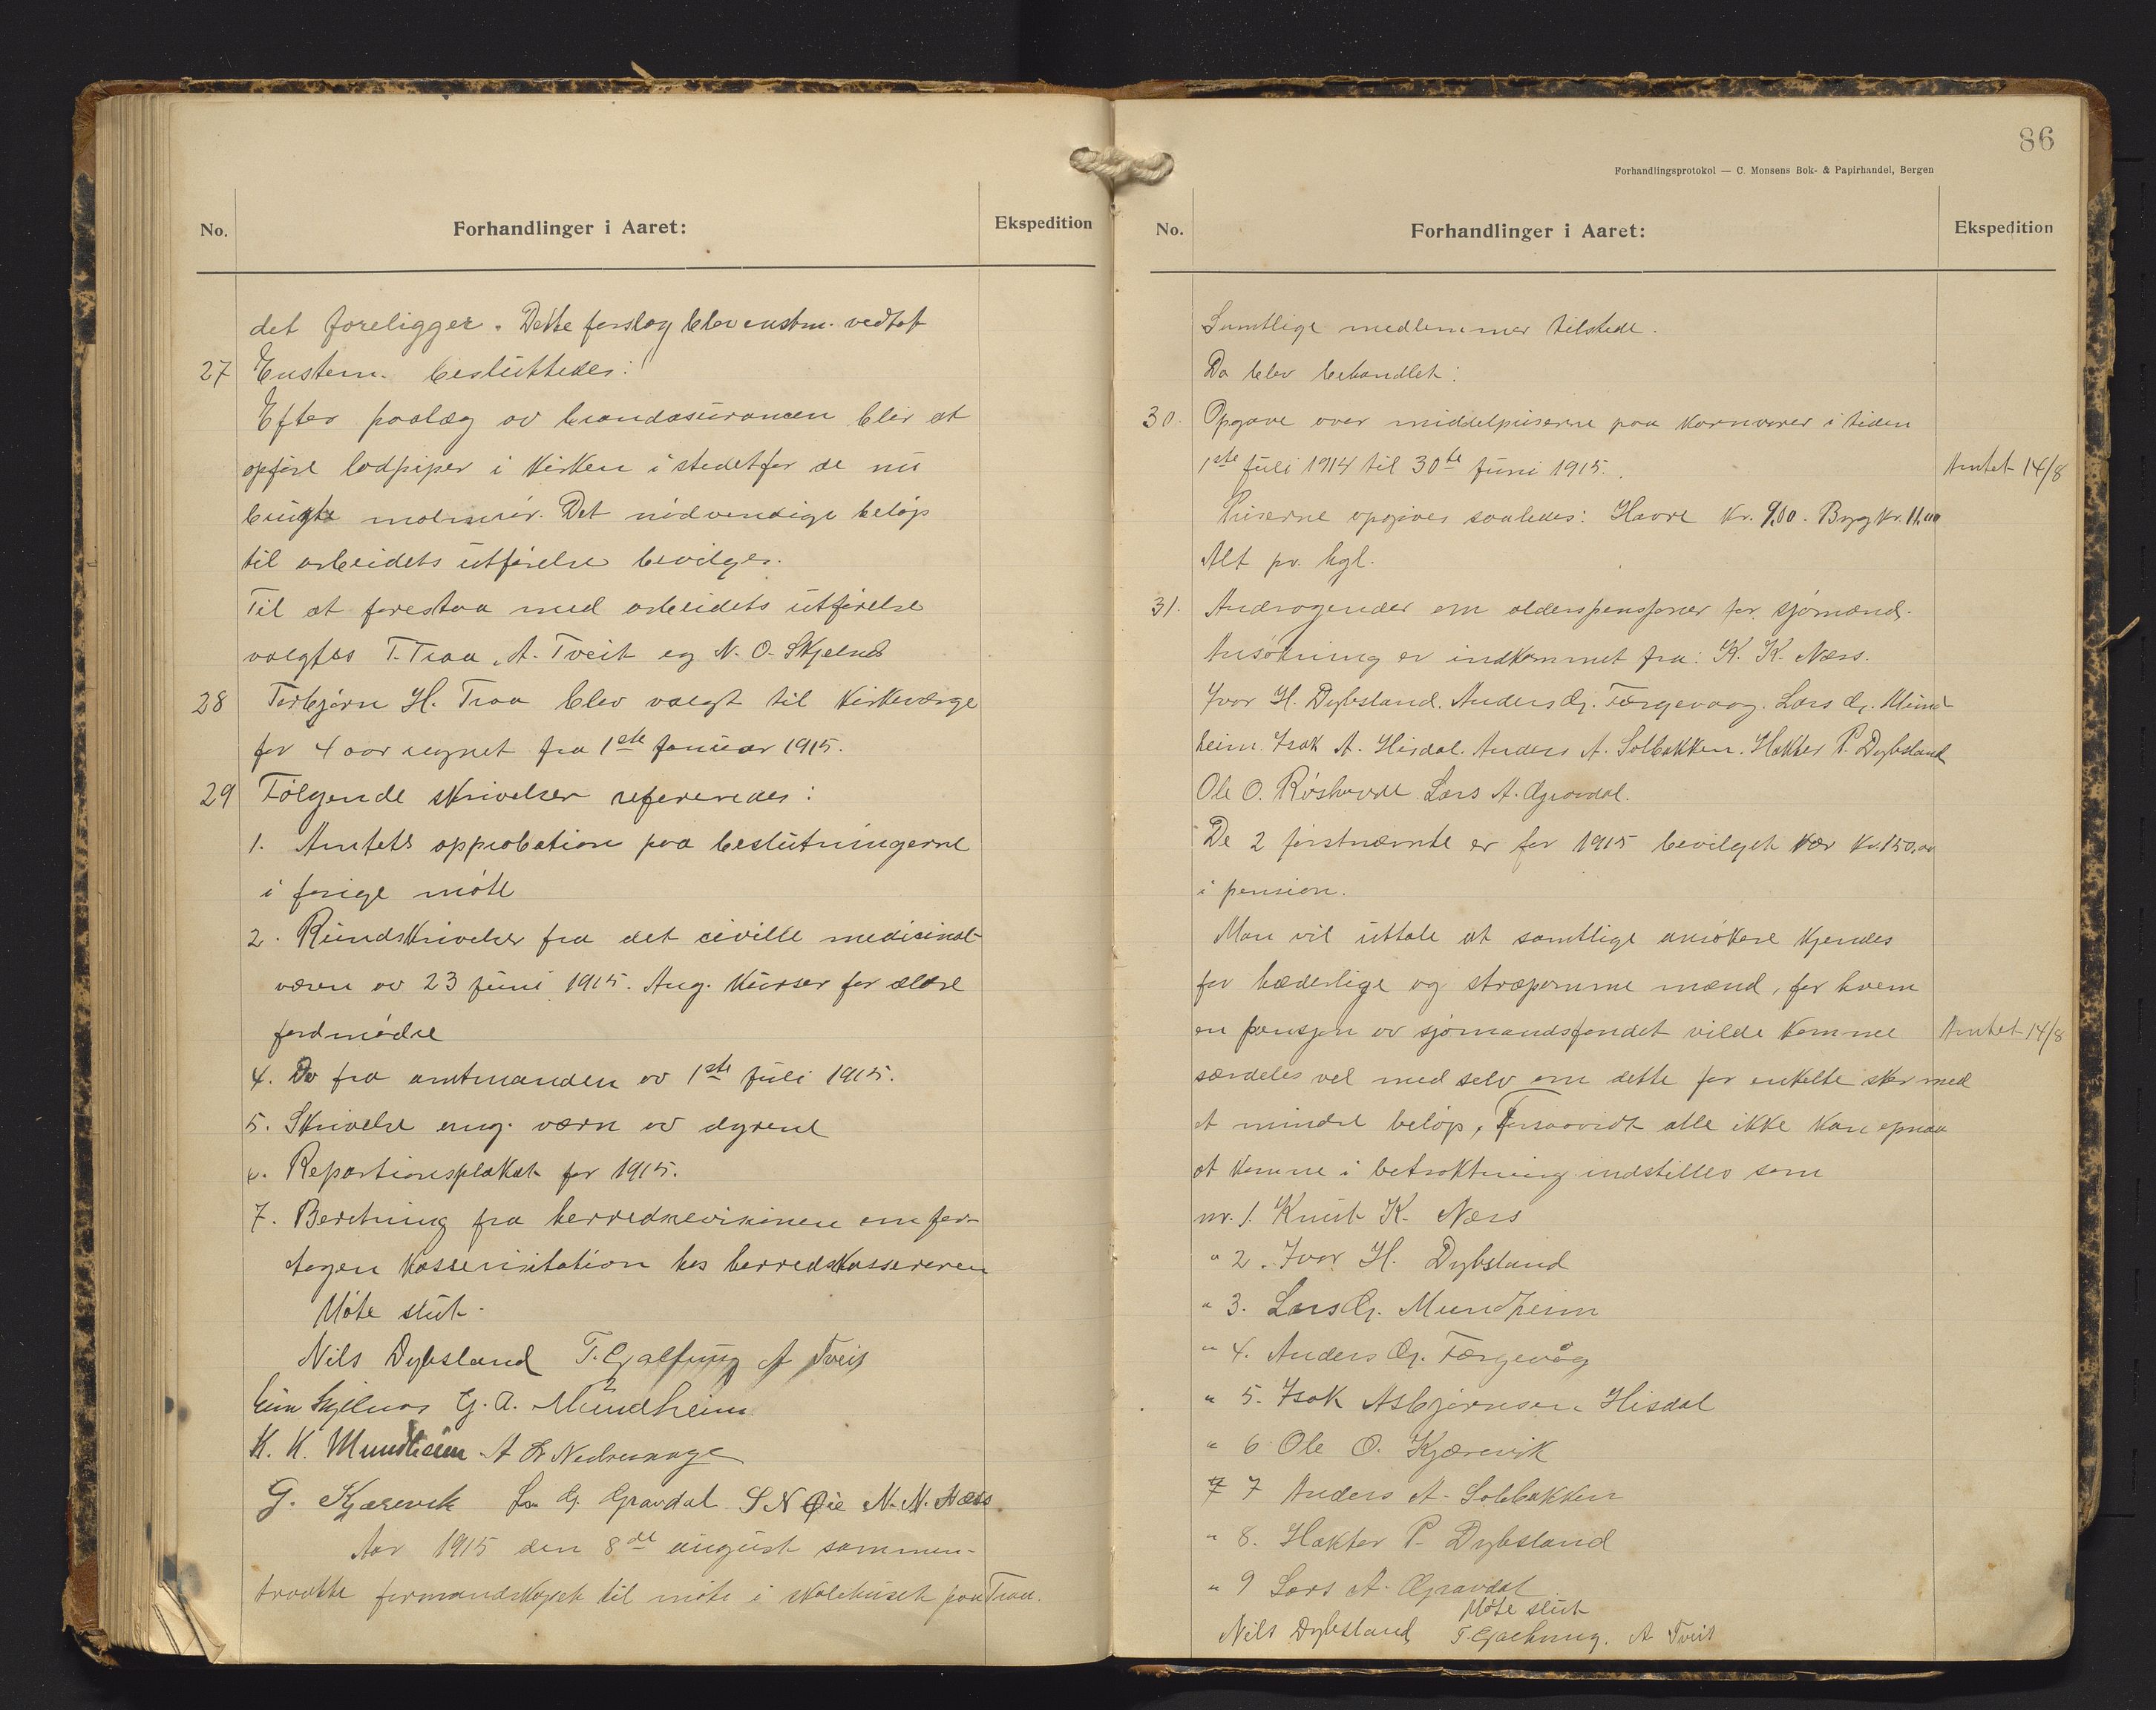 No. Forhandlinger i Aaret: Ekspedition
det foreligger. Dette forslag blev enstm. vedtat
27 Enstem. besluttedes:
Efter paalæg av brandasurancen blir at
opføre lodpiper i kirken i stedetfor de nu
brugte molmrør. Det nødvendige beløp
til arbeidets utførelse bevilges.
Til at forestaa med arbeidets utførelse
valgtes T. Traa, A. Tveit og N. O. Skjelnes
28 Torbjørn H. Traa blev valgt til kirkeværge
for 4 aar regnet fra 1ste januar 1915.
29 Følgende skrivelser refereredes:
1. Amtets approbation paa beslutningerne
i forige møte
2. Rundskrivelser fra det civille medicinal-
væsen av 23 juni 1915. Ang. kurser for ældre
jordmødre
4. Do fra amtmanden av 1ste juli 1915.
5. Skrivelse ang. værn av dyrene
6. Repartionsplakat for 1915.
7. Beretning fra herredsrevisionen om for-
tagen kassevisitation hos herredskassereren
Møte slut.
Nils Dybsland T. Gjalfung A Tveit
Skjelnes G. A. Mundheim
K. K. Mundheim A Nedrevaage
G. Kjærevik G. Gravdal S N Øie N. N. Næss
Aar 1915 den 8de august sammen-
traatte formandskapet til møte i skolehuset paa Traa.
86
Forhandlingsprotokol — C. Monsens Bok- & Papirhandel, Bergen
No. Forhandlinger i Aaret: Ekspedition
Samtlige medlemmer tilstede.
Da blev behandlet:
30. Opgave over middelpriserne paa kornvarer i tiden
1ste juli 1914 til 30te juni 1915. Amtet 14/8
Priserne opgives saaledes: Havre kr. 9,00. Byg kr. 11,00
Alt pr. hgl.
31. Andragender om alderspensjoner for sjømænd.
Ansøkning er indkommet fra: K. K. Næss.
Ivar H. Dybsland. Anders G. Færgevaag. Lars G. Mund-
heim. Isak A. Hisdal. Anders A. Solbakken. Hakter P. Dybsland
Ole O. Lars A. Gravdal.
De 2 førstnævnte er for 1915 bevilget hver kr. 150,00
i pension.
Man vil uttale at samtlige ansøkere kjendes
for hæderlige og stræpsomme mænd, for hvem
en pensjon av sjømandsfondet vilde komme Amtet 14/8
særdeles vel med selv om dette for enkelte sker med
et mindre beløp, Forsaavidt alle ikke kan opnaa
at komme i betraktning indstilles som
nr. 1. Knut K. Næss
" 2. Ivar H. Dybsland
" 3. Lars G. Mundheim
" 4. Anders G. Færgevåg
" 5. Isak Asbjørnsen Hisdal
" 6 Ole O. Kjærevik
" 7 Anders A. Solbakken
" 8. Hakter P. Dybsland
" 9 Lars A. Gravdal
Møte slut
Nils Dybsland T. Gjalfung. A Tveit